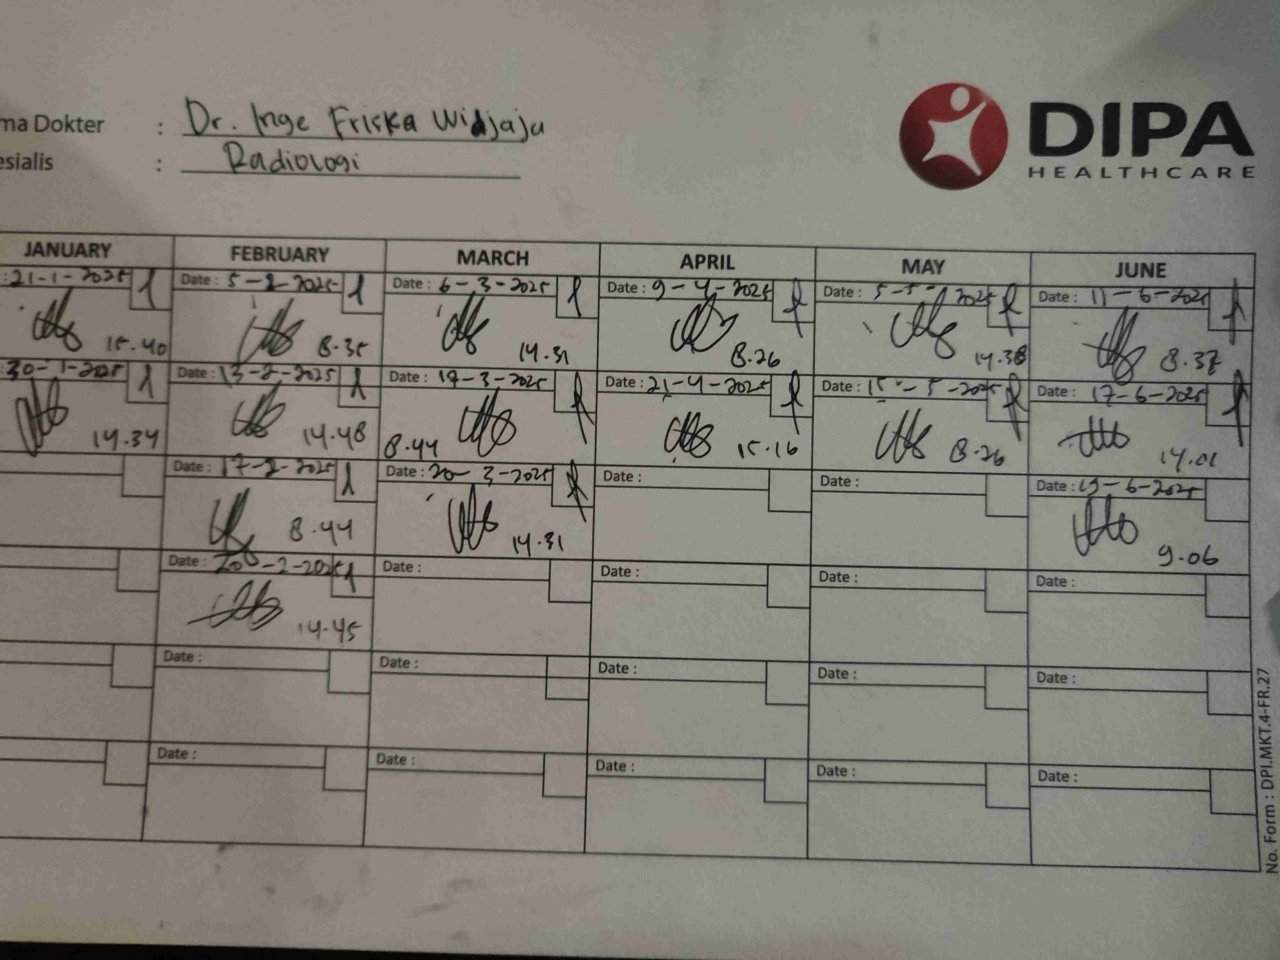 ma Dokter : Dr. Inge Friska Widjaja
esialis : Radiologi
DIPA
HEALTHCARE
JANUARY FEBRUARY MARCH APRIL MAY JUNE
: 21-1-2025 Date : 5-2-2025 Date : 6-3-2025 Date : 9-4-2025 Date : 5-5-2025 Date : 11-6-2025
15.40 8.35 14.31 8.26 14.38 8.37
: 30-1-2025 Date : 13-2-2025 Date : -3-2025 Date : 21-4-2025 Date : 15-5-2025 Date : 17-6-2025
14.34 14.48 8.44 15.16 8.26 14.01
Date : 17-2-2025 Date : 20-3-2025 Date : Date : Date : 19-6-2025
8.44 14.31 9.06
Date : 20-2-2025 Date : Date : Date : Date :
14.45
Date : Date : Date : Date : Date :
Date : Date : Date : Date : Date :
No. Form : DPI.MKT.4-FR.27